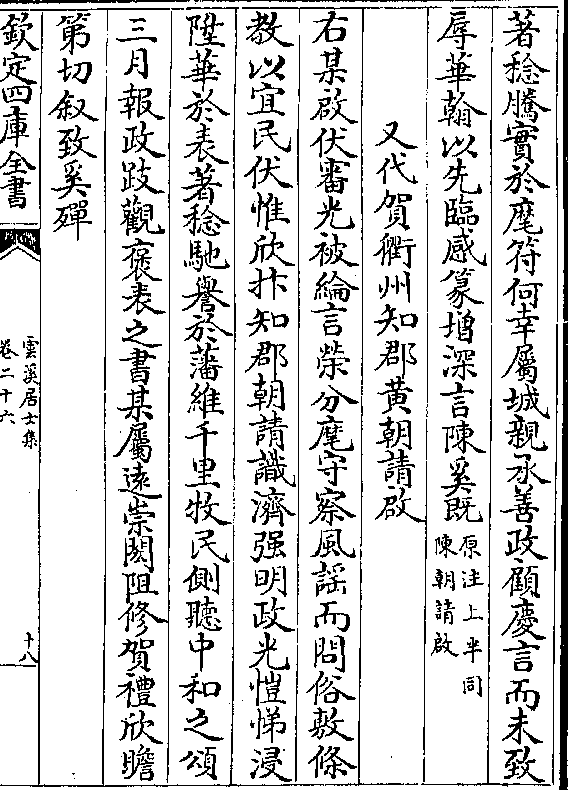 著稔騰實於麾符何幸屬城親承善政顧慶言而未致
辱華翰以先臨感篆増深言陳奚既原注上半同陳朝請啟
又代賀衢州知郡黄朝請啟
右某啟伏審光被綸言榮分麾守察風謡而問俗敷條
教以宜民伏惟欣抃知郡朝請識濟强明政光愷悌浸
陞華於表著稔馳譽於藩維千里牧民側聽中和之頌
三月報政跂觀褒表之書某屬逺崇閎阻修賀禮欣瞻
第切叙致奚殫
欽定四庫全書
雲溪居士集
卷二十六
十八